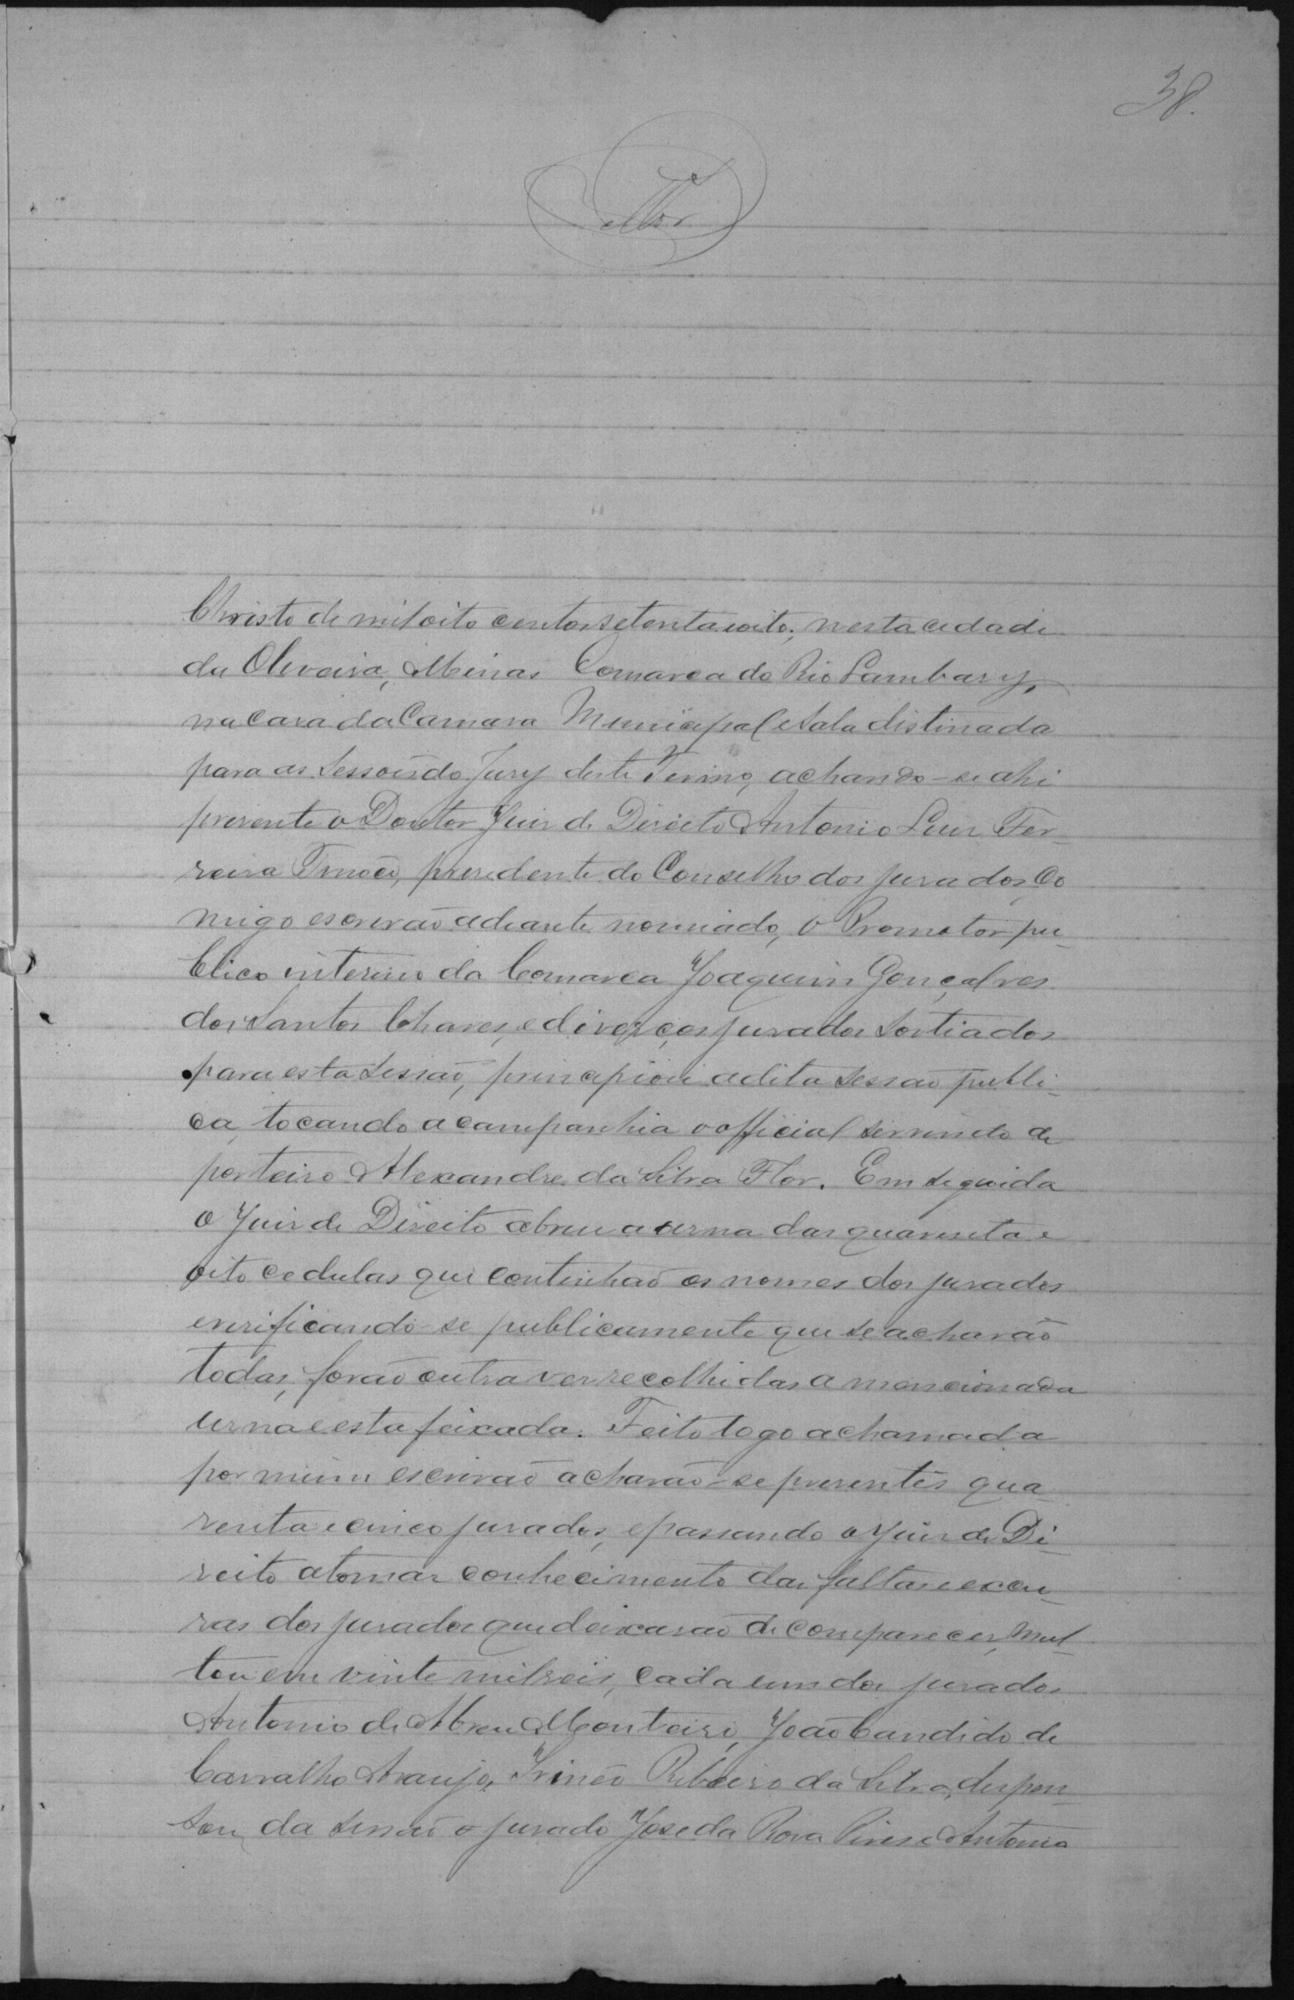 38.
Christo de mil oito centos setenta e oito, nesta cidade
da Oliveira, Minas Comarca do Rio Lambary,
na casa da Camara Municipal e sala distinada
para as Sessoēs do Jury deste Termo, achando-se ahi
presente o Doutor Juiz de Direito Antonio Luiz Fer-
reira Tinoco, presidente do Conselho dos jurados, Co
migo escrivaõ adiante nomiado, o Promotor pu-
blico interino da Comarca Joaquim Gonçalves
dos Santos Chaves, e diverços jurados Sortiados
para esta Sessaõ, principiou a dita Sessaõ publi-
ca, tocando a campanhia o official servindo de
porteiro Alexandre da Silva Flor. Em seguida
o Juiz de Direito abriu a urna das quarenta e
oito cedulas que continhaõ os nomes dos jurados
e virificando-se publicamente que se acharaõ
todas, foraõ outra vez recolhidas a mencionada
urna e esta feixada. Feito logo a chamada
por mim escrivaõ acharaõ-se presentes qua-
renta e cinco jurados, e passando o Juiz de Di-
reito a tomar conhecimento das faltas e excu-
zas dos jurados que deixaraõ de comparecer, mul-
tou em vinte mil reis, cada um dos jurados
Antonio de Abreu Monteiro, Joaõ Candido de
Carvalho Araujo, Irinêo Ribeiro da Silva, despen-
sou da sessaõ o jurado José da Rosa Pires e Antonio